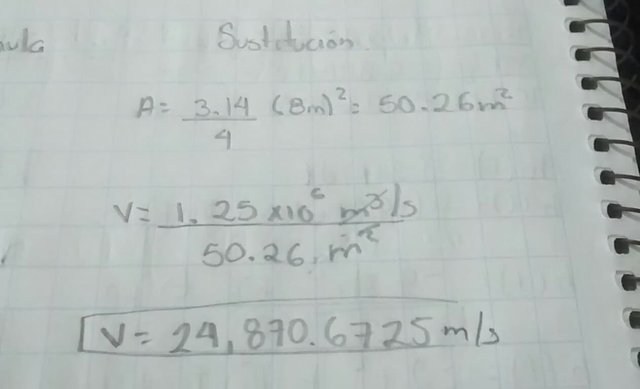 mula Sustitución
A= 3.14/4 (8m)²= 50.26m²
V= 1.25 x10⁶ m³/s / 50.26 m²
V= 24,870.6725 m/s